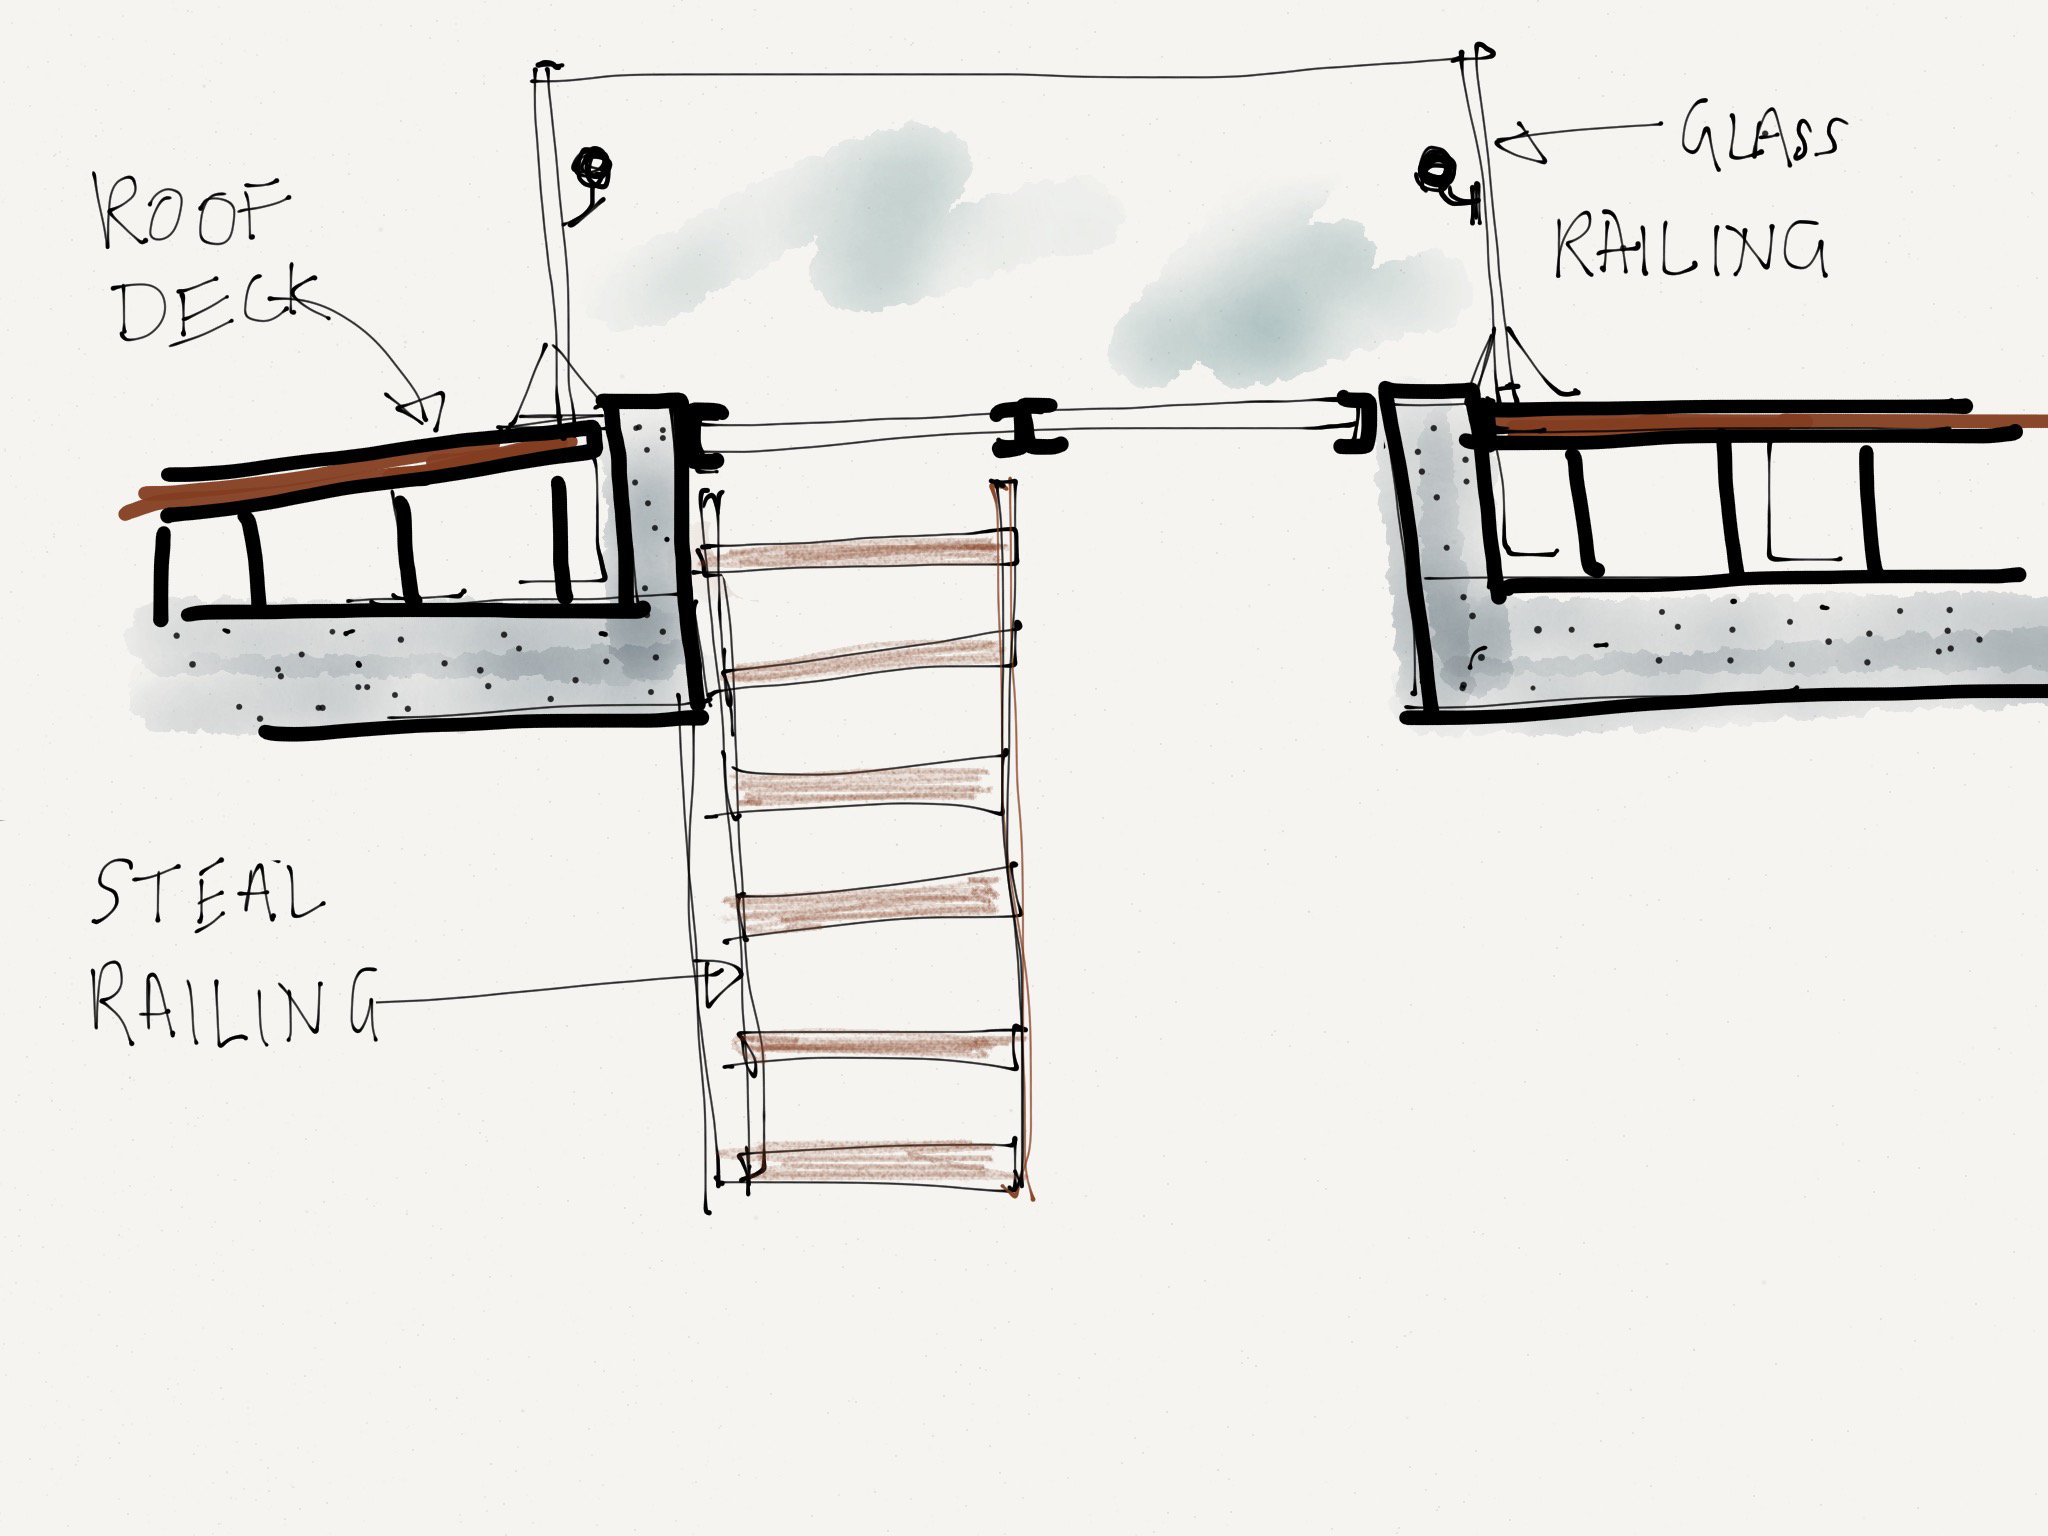 ROOF
DECK
GLASS
RAILING
STEAL
RAILING